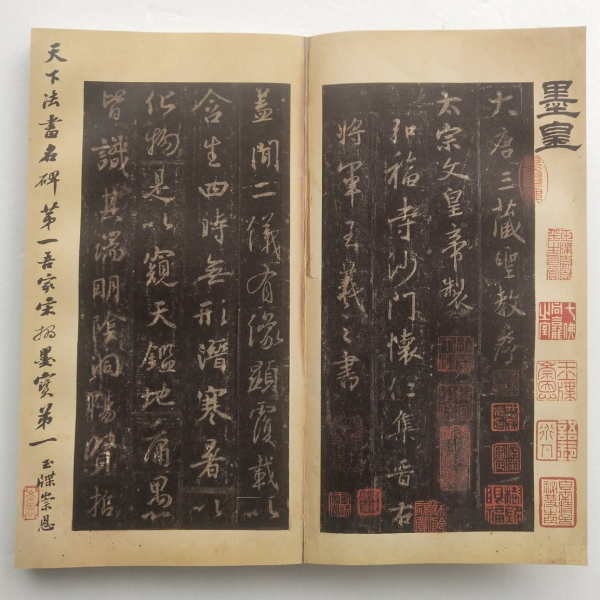 墨皇
大唐三藏聖教序
太宗文皇帝製
弘福寺沙門懷仁集晉右
將軍王羲之書
蓋聞二儀有像顯覆載以
含生四時無形潛寒暑以
化物是以窺天鑑地庸愚
皆識其端明陰洞陽賢哲
天下法書名碑第一吾家宋拓墨寶第一玉牒崇恩